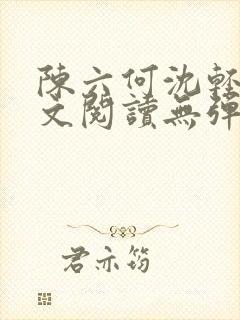 陳六何沈輕
文閱讀無彈
君亦筠